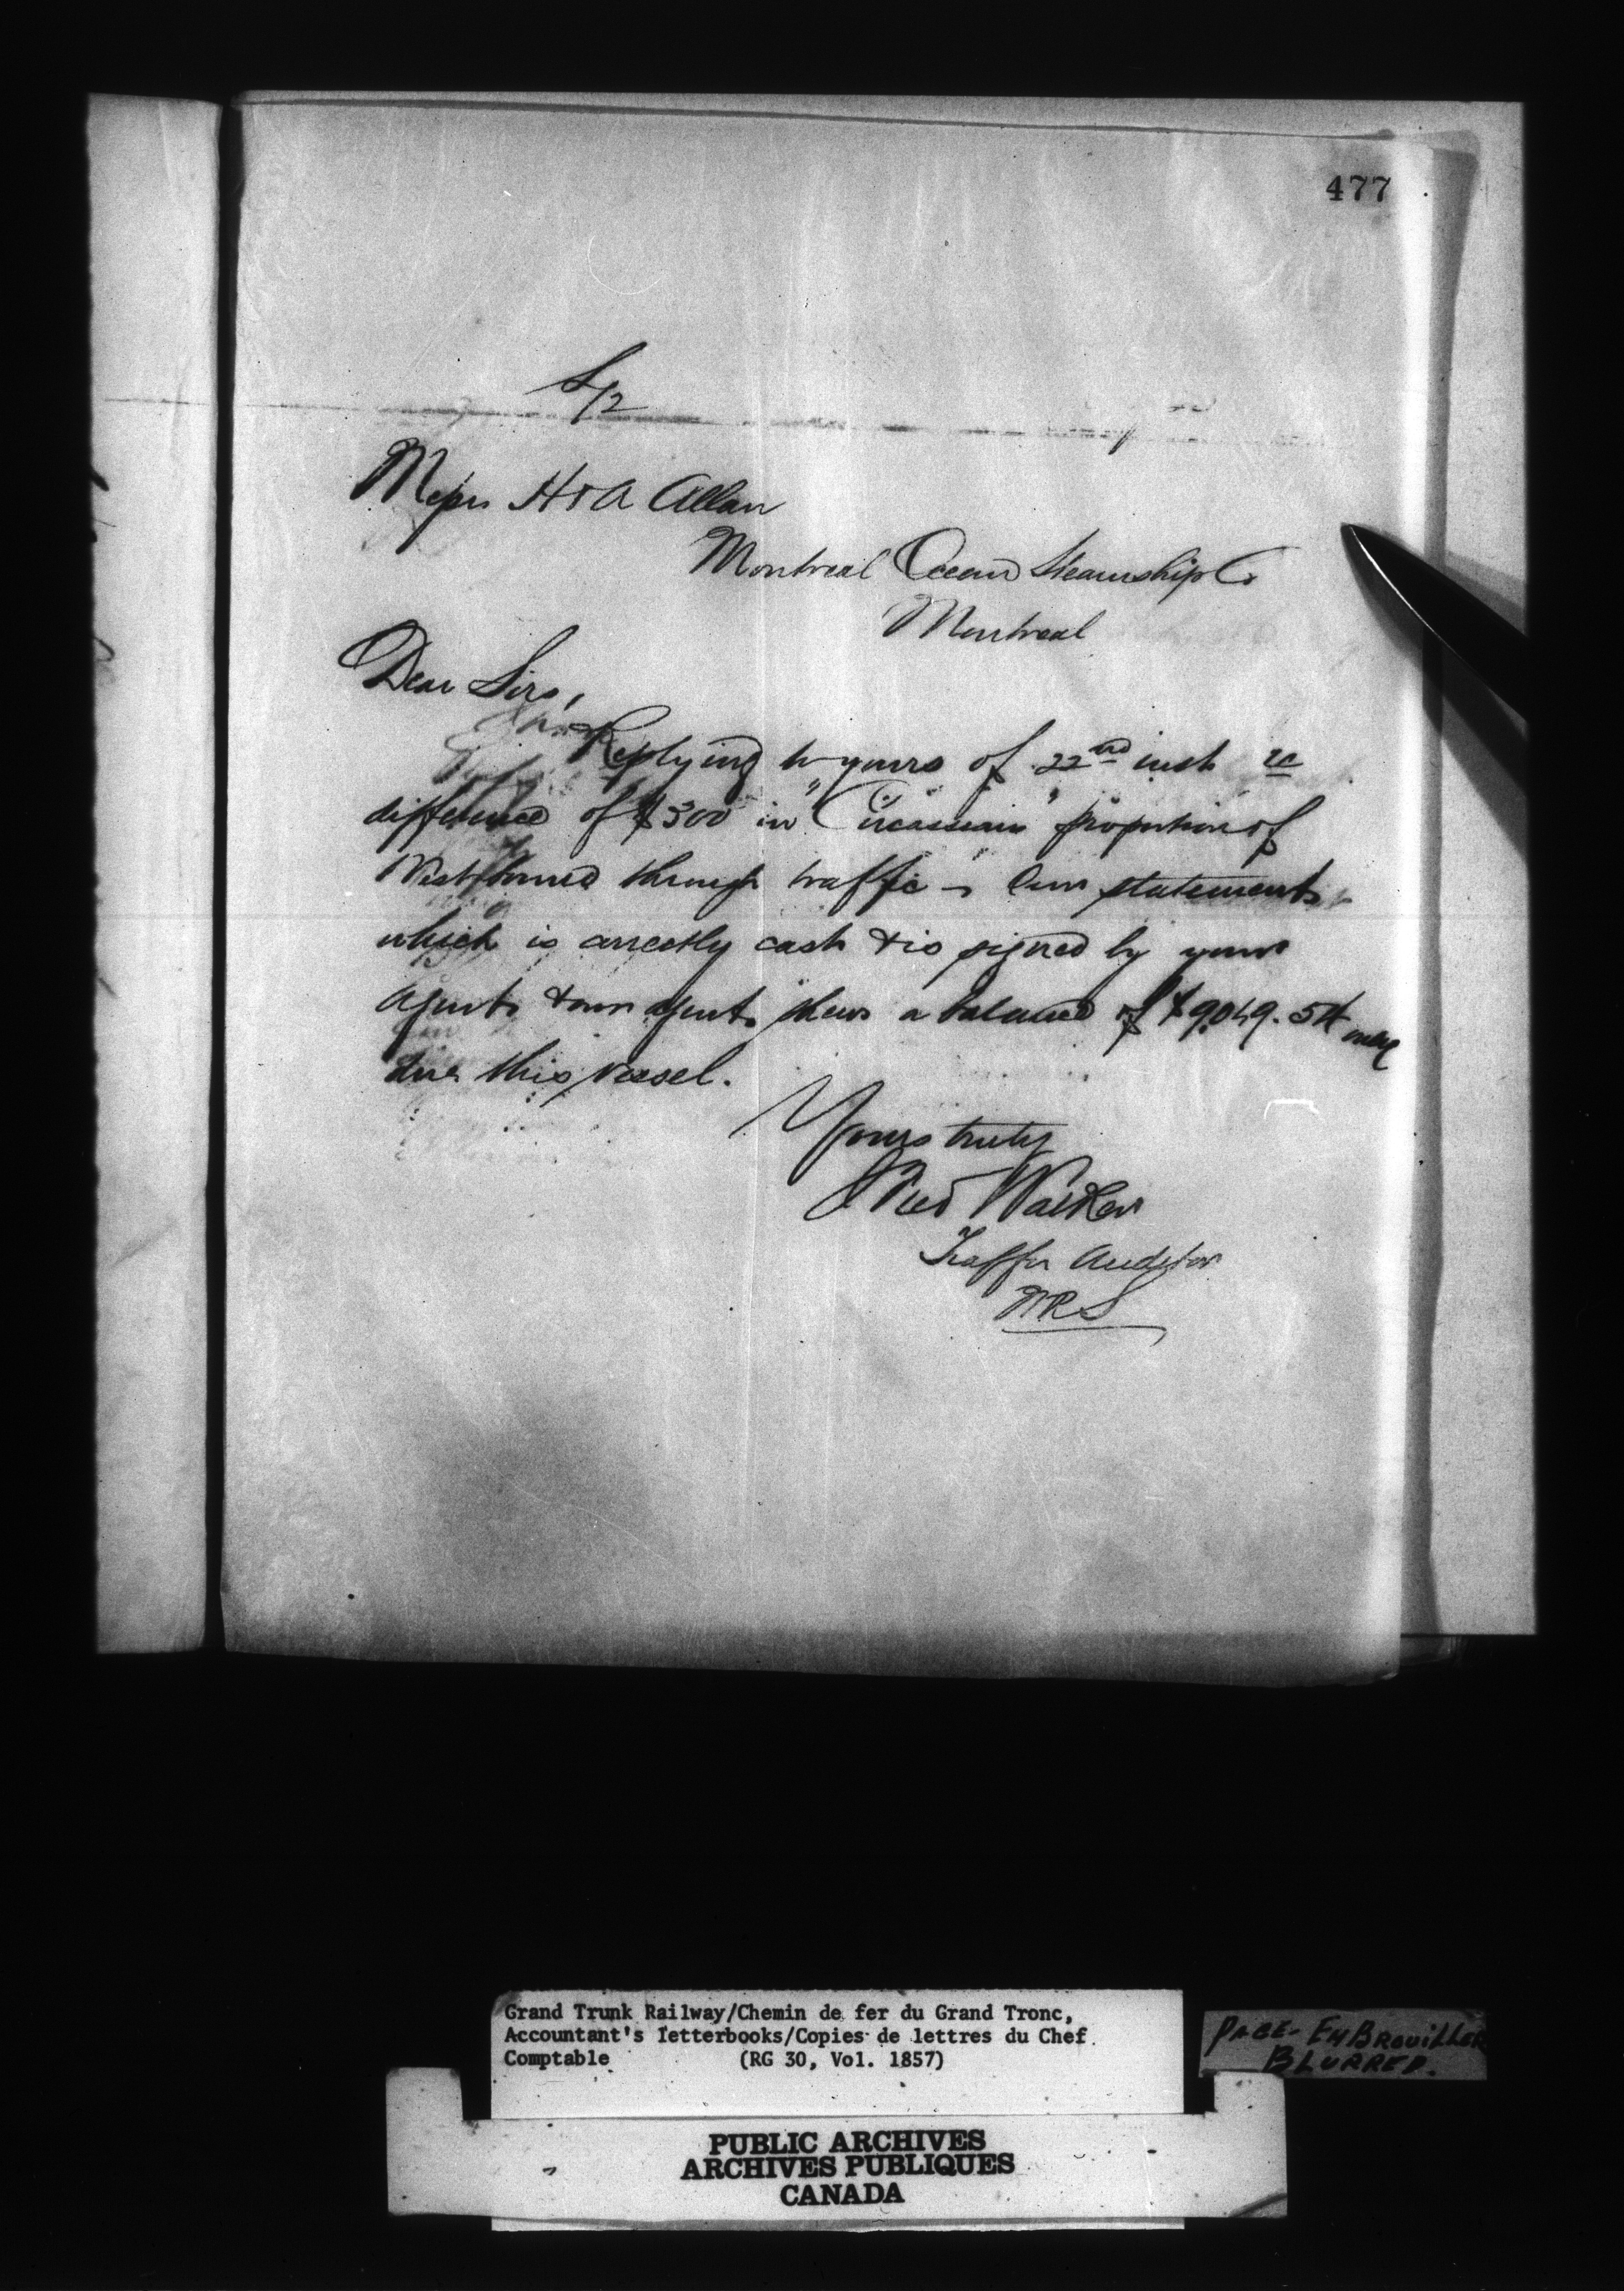 477
S/2
Messrs H & A Allan
Montreal Ocean Steamship Co
Montreal
Dear Sirs,
Replying to yours of 22nd inst re
difference of $300 in "Circassian" proportion of
West bound through traffic - Our statement
which is correctly cash & is signed by your
agents & our agents shews a balance of $9,049.54 only
due this vessel.
Yours truly
Fred Walker
Traffic Auditor
WRS
Grand Trunk Railway/Chemin de fer du Grand Tronc,
Accountant's letterbooks/Copies de lettres du Chef
Comptable (RG 30, Vol. 1857)
PAGE - EMBROUILLER
BLURRED.
PUBLIC ARCHIVES
ARCHIVES PUBLIQUES
CANADA